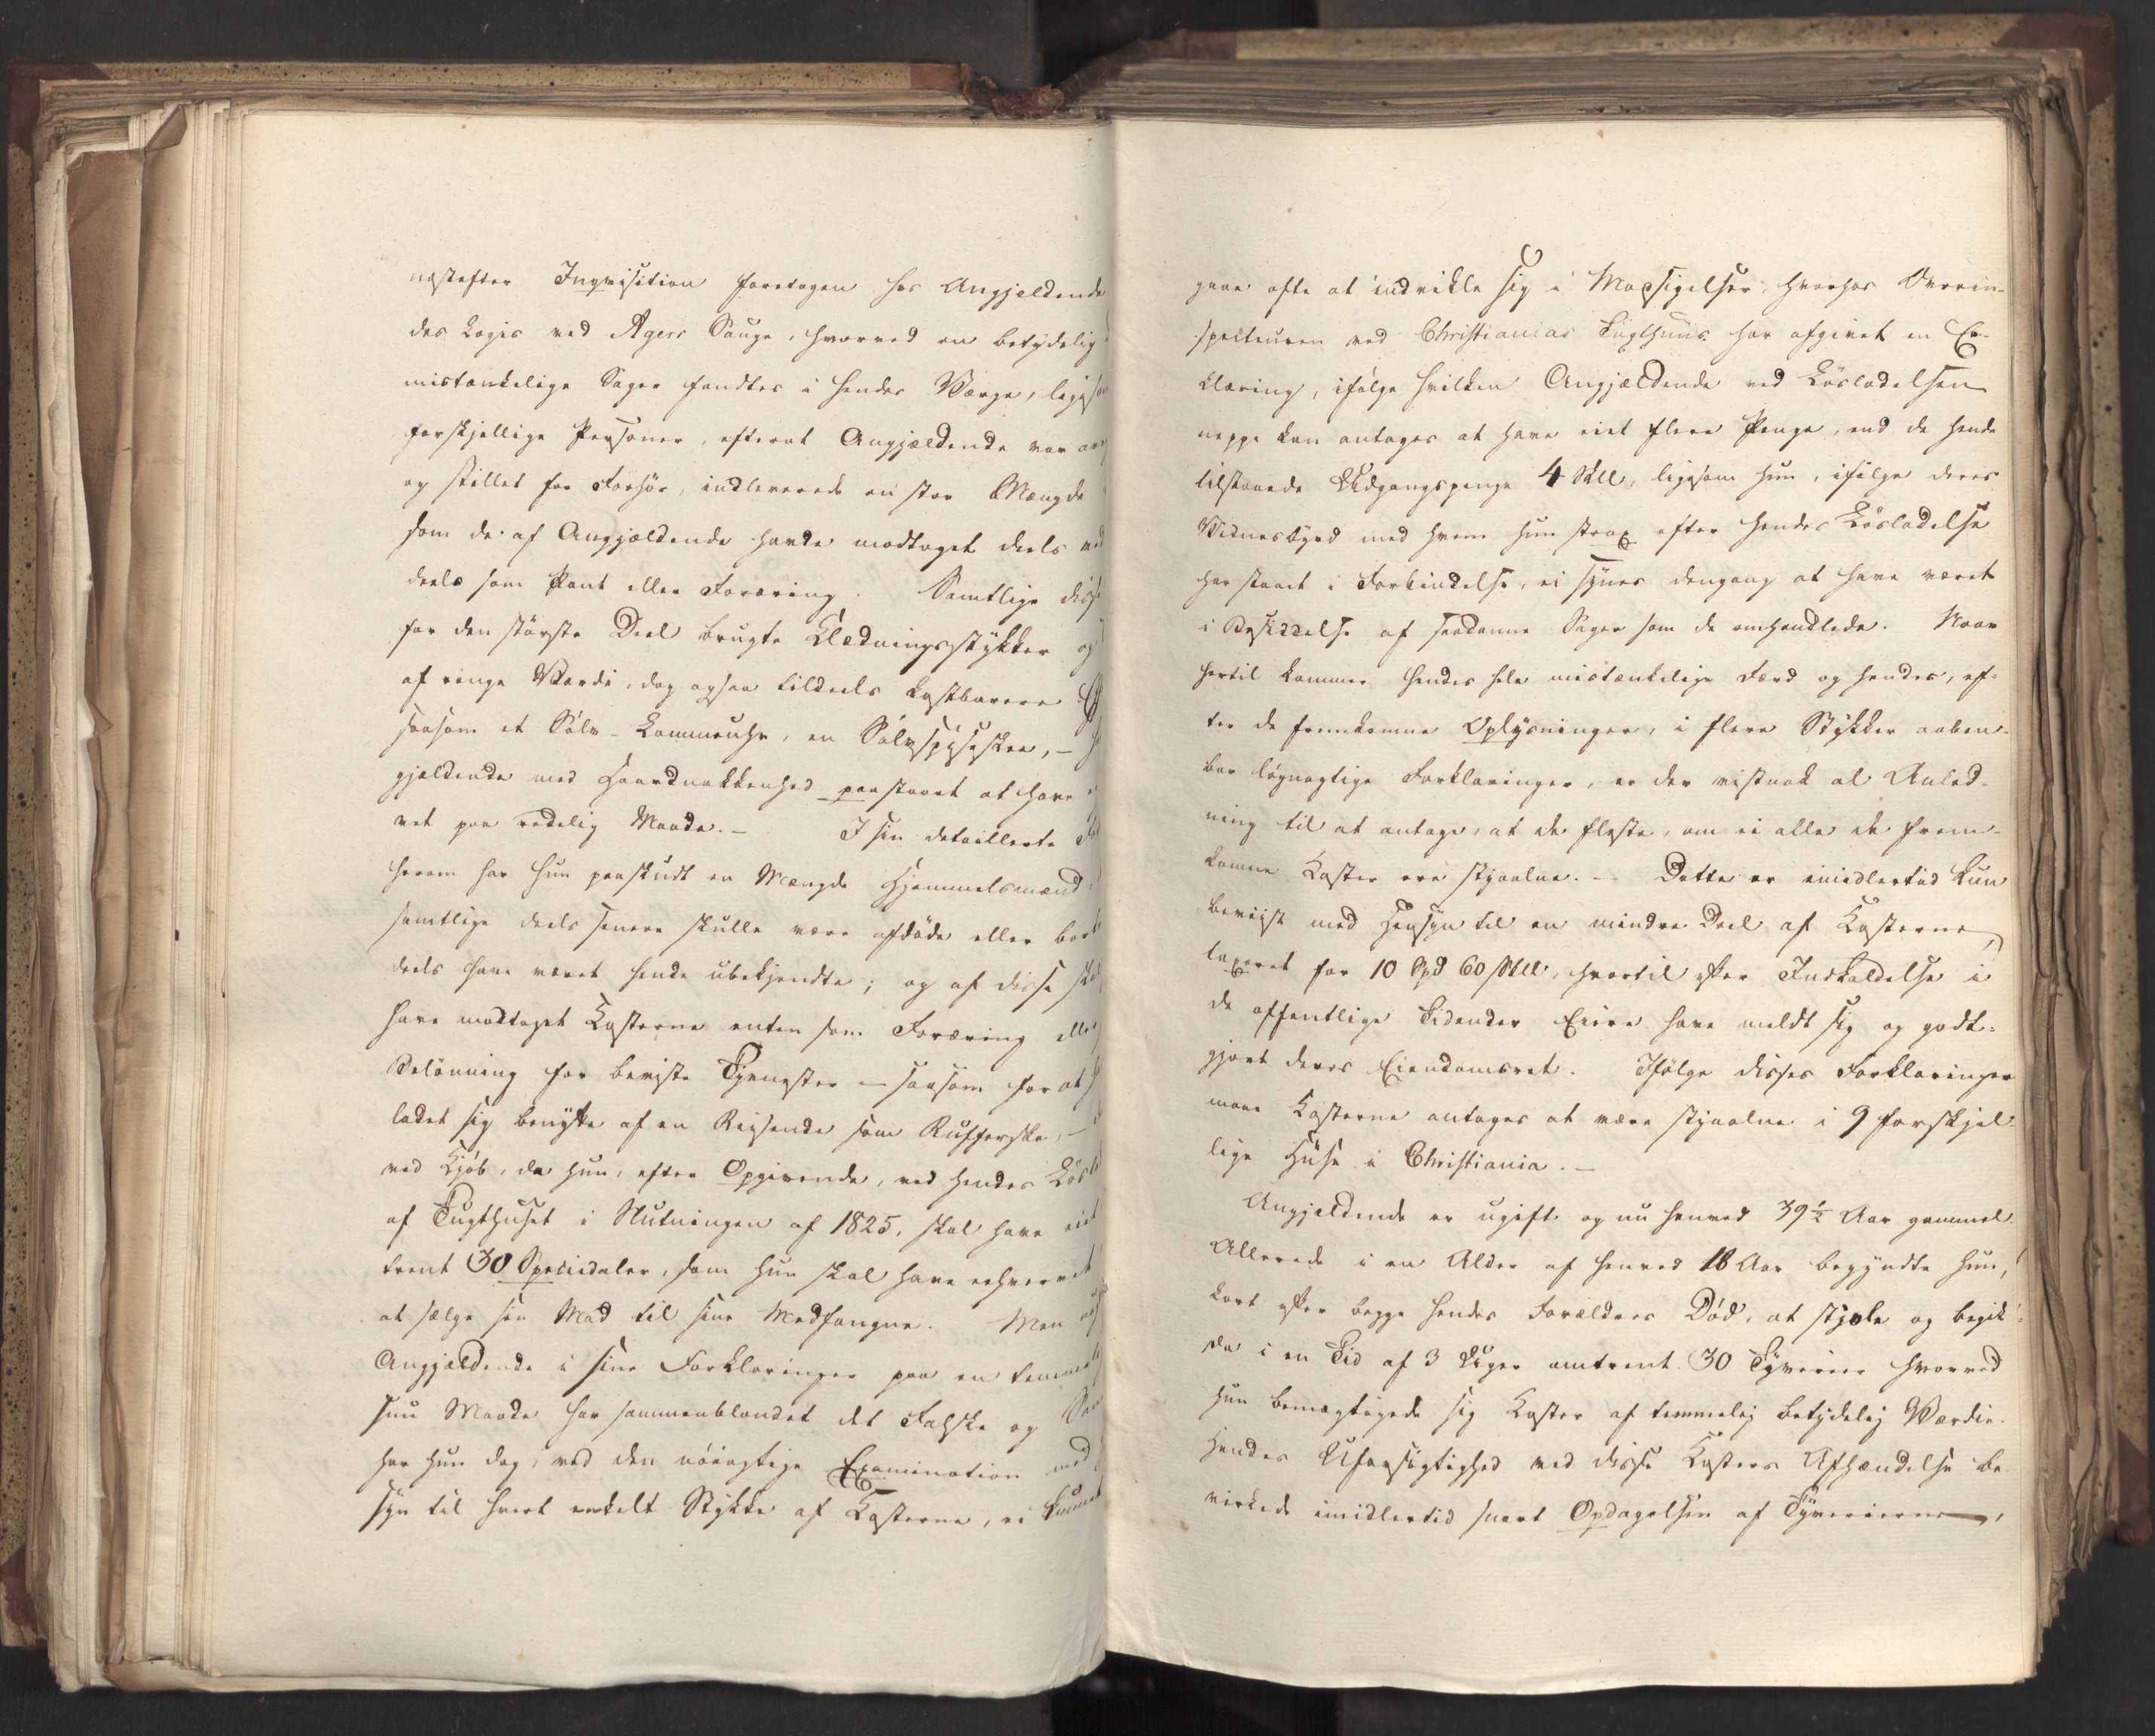 næstefter Inqvisition foretagen hos Angjeldende
des Logis ved Agers Sauge, hvorved en betydelig
mistænkelige Sager fandtes i hendes Værge, ligesom
forskjellige Personer, efterat Angjældende var
og stillet for Forhør, indleverede en stor Mængde
som de af Angjældende havde modtaget deels ved
deels som Pant eller Foræring. Samtlige disse
for den störste Deel brugte Klædningsstykker og
af ringe Værdi, dog ogsaa tildeels kostbarere
saasom et Sölv-Lommeuhr, en Sölvspiseskee, –
gjeldende med Haardnakkenhed paastaaet at have
vet paa redelig Maade. – I sin detaillerte
herom har hun paaskudt en Mængde Hjemmelsmænd
samtlige deels senere skulle være afdöde eller
deels have været hende ubekjendte; og af disse
have modtaget Kosterne enten som Foræring eller
Belönning for beviste Tjenester – saasom for at
ladet sig benytte af en Reisende som Rufferske, –
ved Kjöb, da hun, efter Opgivende, ved hendes
af Tugthuset i Slutningen af 1825, skal have eiet
trent 30 Speciedaler, som hun skal have erhvervet
at sælge sin Mad til sine Medfangne. Men
Angjældende i sine Forklaringer paa en temmelig
snu Maade har sammenblandet det Falske og
har hun dog, ved den nöiagtige Examination med
syn til hvert enkelt Stykke af Kosterne, ei kunnet
gaae ofte at indvikle sig i Modsigelser, hvorhos Overin-
specteuren ved Christianias Tugthuus har afgivet en Er-
klæring, ifölge hvilken Angjældende ved Lösladelsen
neppe kan antages at have eiet flere Penge, end de hende
tilstaaede Udgangspenge 4 Skll, ligesom hun, ifölge deres
Vidnesbyrd med hvem hun strax efter hendes Lösladelse
har staaet i Forbindelse, ei synes dengang at have været
i Besiddelse af saadanne Sager som de omhandlede. Naar
hertil kommer hendes hele mistænkelige Færd og hendes, ef-
ter de fremkomne Oplysninger, i flere Stykker aaben-
bar lögnagtige Forklaringer, er der vistnok al Anled-
ning til at antage, at de fleste, om ei alle de frem-
komne Koster ere stjaalne. – Dette er imidlertid kun
beviist med Hensyn til en mindre Deel af Kosterne,
taxeret for 10 Spd 60 Skll, hvortil efter Indkaldelse i
de offentlige Tidender Eiere have meldt sig og godt-
gjort deres Eiendomsret. Ifölge disses Forklaringer
maae Kosterne antages at være stjaalne i 9 forskjel-
lige Huse i Christiania. –
Angjeldende er ugift og nu henved 39½ Aar gammel.
Allerede i en Alder af henved 18 Aar begyndte hun,
kort efter begge hendes Forældres Död, at stjæle og begik
da i en Tid af 3 Uger omtrent 30 Tyverier hvorved
hun bemægtigede sig Koster af temmelig betydelig Værdie.
Hendes Uforsigtighed ved disse Kosters Afhændelse be-
virkede imidlertid snart Opdagelsen af Tyverierne,